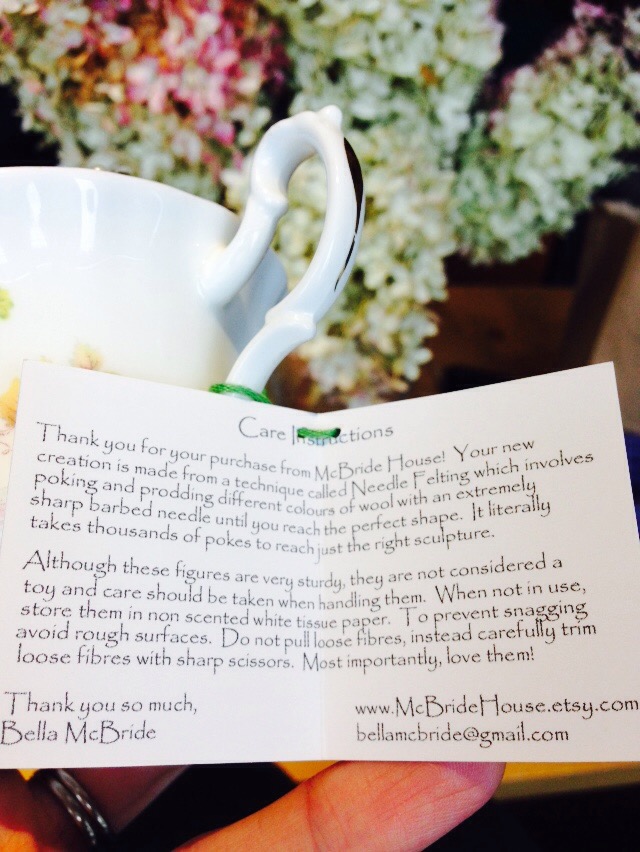 Care Instructions
Thank you for your purchase from McBride House! Your new
creation is made from a technique called Needle Felting which involves
poking and prodding different colours of wool with an extremely
sharp barbed needle until you reach the perfect shape. It literally
takes thousands of pokes to reach just the right sculpture.
Although these figures are very sturdy, they are not considered a
toy and care should be taken when handling them. When not in use,
store them in non scented white tissue paper. To prevent snagging
avoid rough surfaces. Do not pull loose fibres, instead carefully trim
loose fibres with sharp scissors. Most importantly, love them!
Thank you so much,
Bella McBride
www.McBrideHouse.etsy.com
bellamcbride@gmail.com